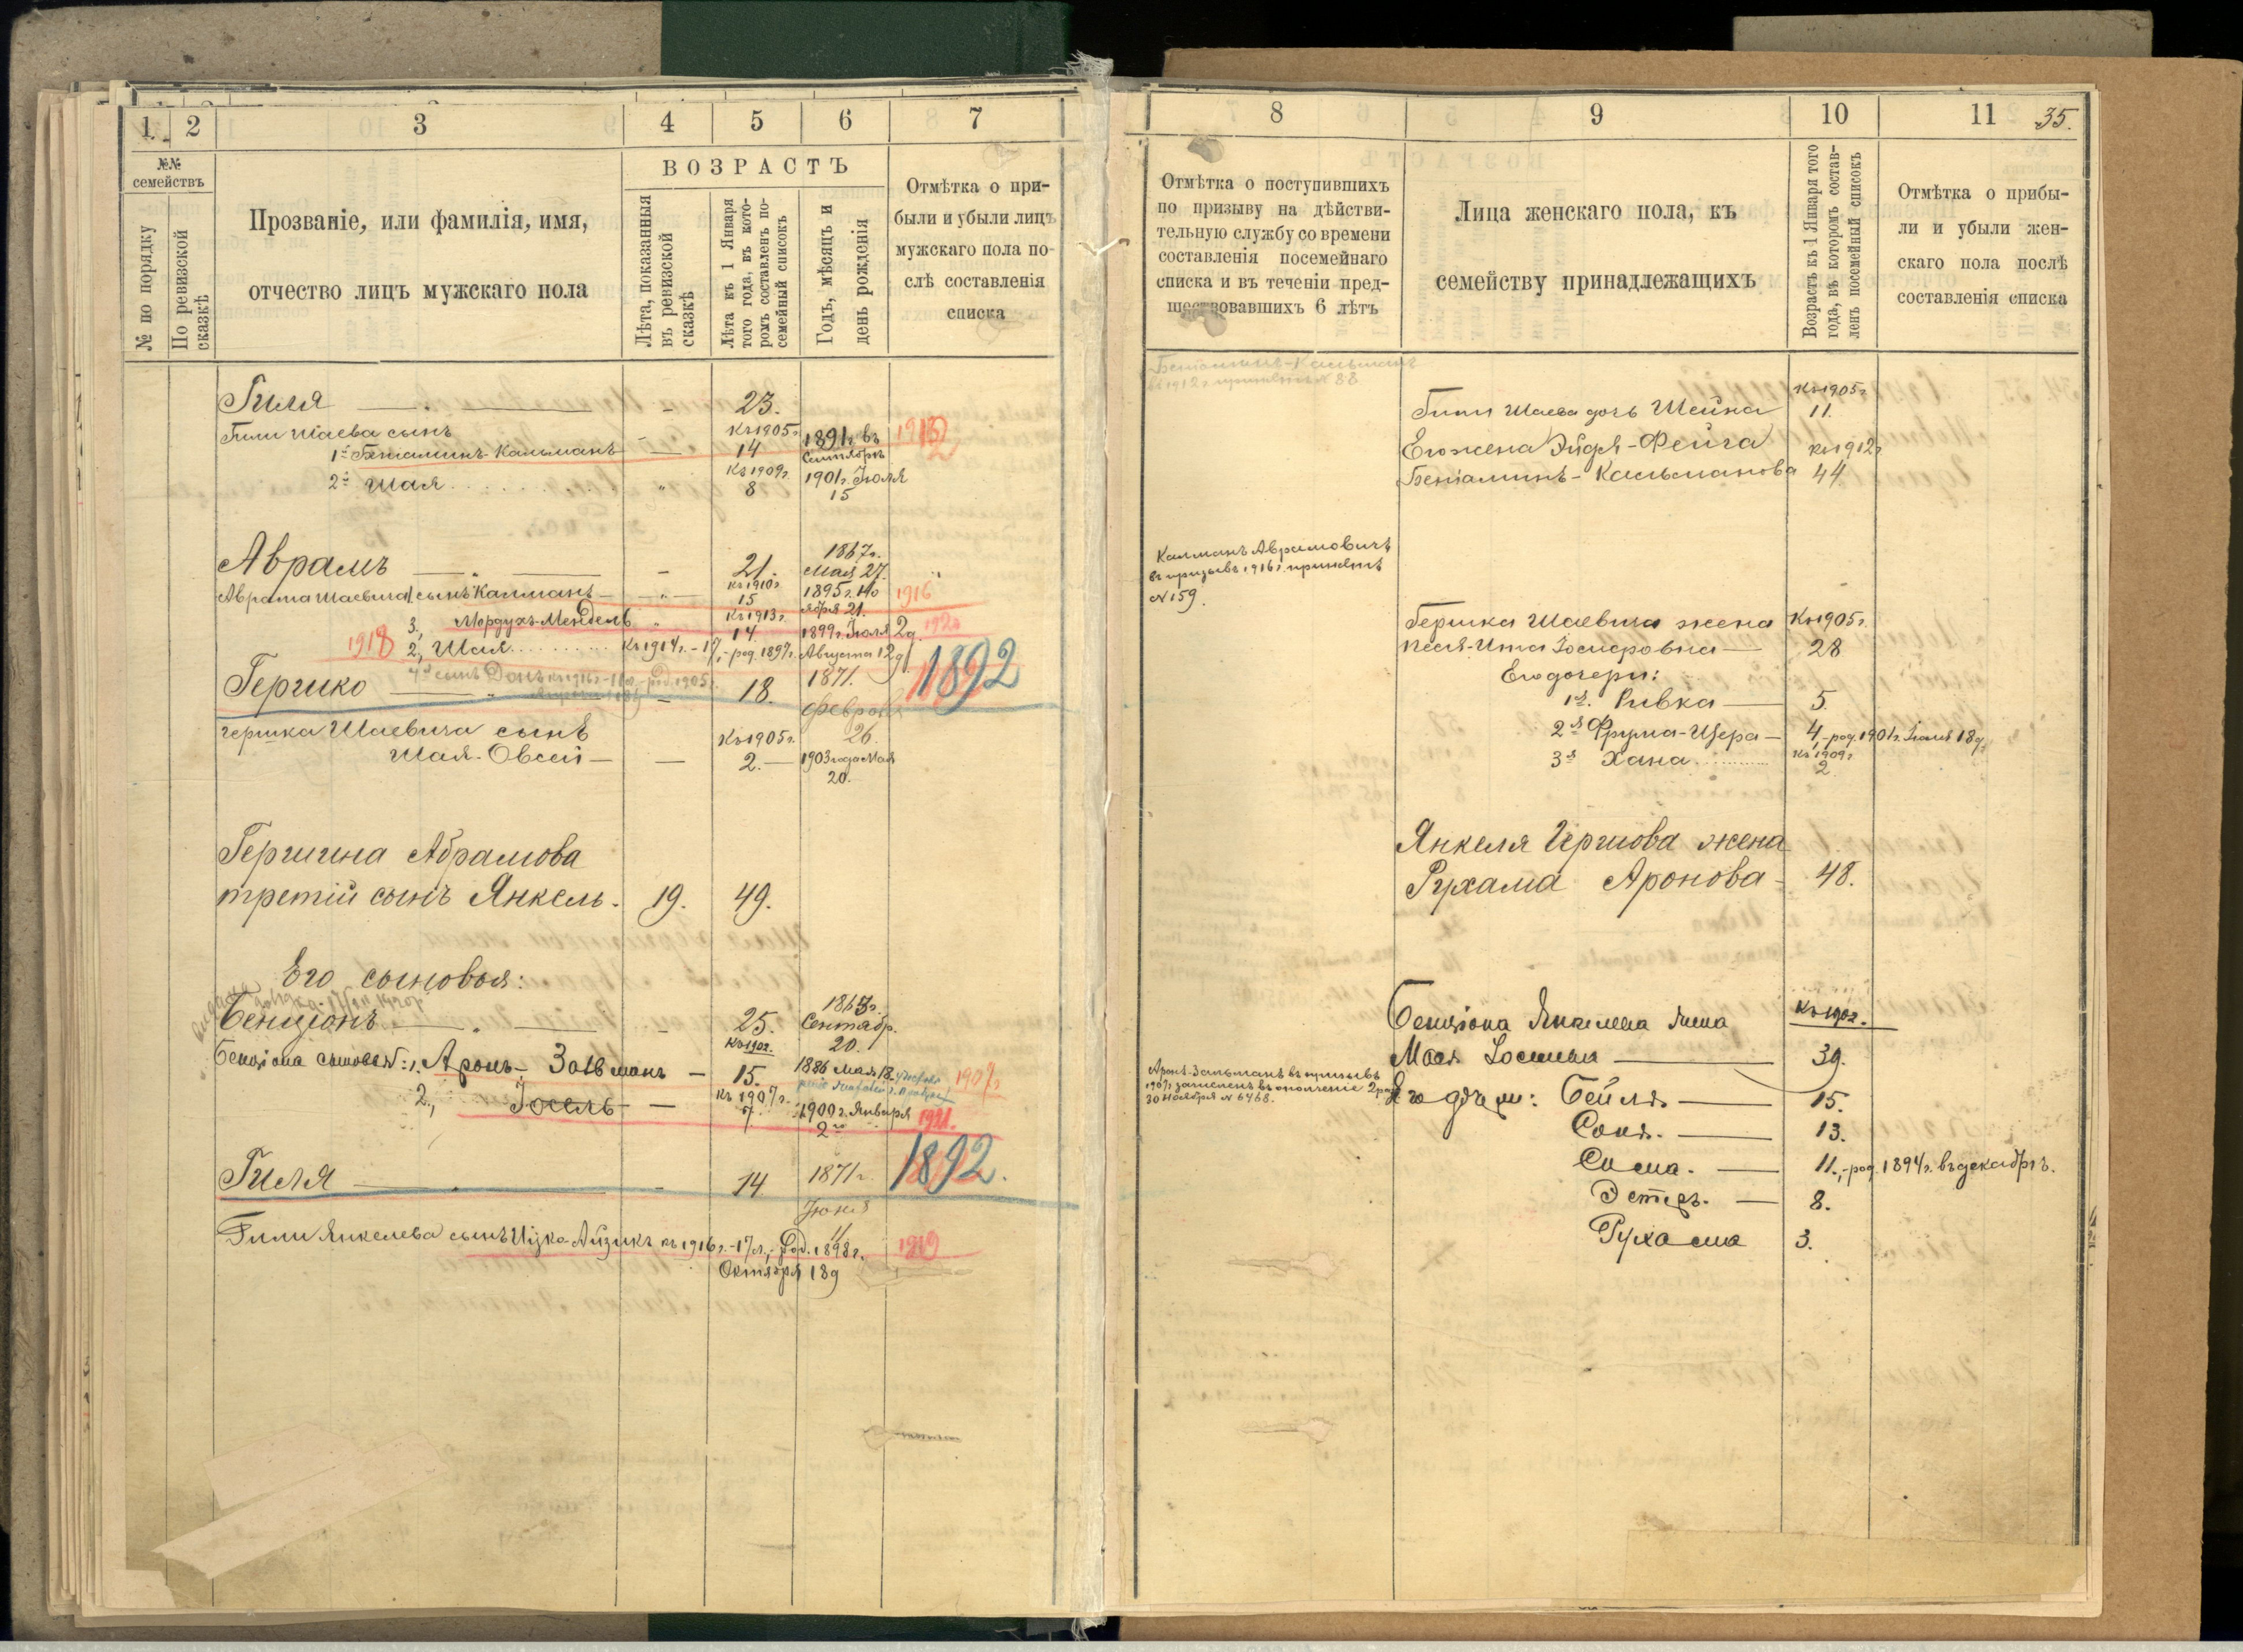 1 2 3 4 5 6 7
№№ семействъ
№ по порядку
По ревизской сказкѣ
Прозваніе, или фамилія, имя,
отчество лицъ мужскаго пола
ВОЗРАСТЪ
Лѣта, показанныя въ ревизской сказкѣ
Лѣта къ 1 Января того года, въ которомъ составленъ посемейный списокъ
Годъ, мѣсяцъ и день рожденія
Отмѣтка о при-
были и убыли лицъ
мужскаго пола по-
слѣ составленія
списка
Гиля — " — - 23.
Гили Шаева сынъ къ 1905 г.
1й Беніаминъ-Кальманъ — 14 1891 г. въ Сентябрѣ 1912
2й Шая " къ 1909 г. 8 1901 г. Іюля 15
Аврамъ — " — - 21. 1867 г. Мая 27.
Аврама Шаевича 1, сынъ Калманъ — " — къ 1910 г. 15 1895 г. Ноября 21. 1916
3, Мордухъ-Мендель " къ 1913 г. 14 1899 г. Іюля 2 д. 1920
1918 2, Шая къ 1914 г. - 17, - род. 1897 г. Августа 12 д.
4й сынъ къ 1916 г. - 11 л. - род. 1905 г.
Гершко — " — - 18. 1871. Февраля 26. 1892
Гершка Шаевича сынъ къ 1905 г.
Шая-Овсей — — 2. — 1903 года Мая 20.
Гершина Абрамова
третій сынъ Янкель. 19. 49.
Его сыновья:
Бенціонъ — " — - 25. Сентябр. 20.
Бенціона сыновья: 1. Аронъ-Зальманъ — къ 1902. 15. 1886 Мая 18. 1907 г.
2, Іосель — къ 1907 г. 7 1900 г. Января 2го 1921.
Гиля — " — - 14 1871 г. Іюня 11 1892.
Гили Янкелева сынъ Ицка-Айзикъ къ 1916 г. - 17 л., - Род. 1898 г. 1919
Октября 18 д
8 9 10 11 35.
Отмѣтка о поступившихъ
по призыву на дѣйстви-
тельную службу со времени
составленія посемейнаго
списка и въ теченіи пред-
шествовавшихъ 6 лѣтъ
Лица женскаго пола, къ
семейству принадлежащихъ
Возрастъ къ 1 Января того года, въ которомъ составленъ посемейный списокъ
Отмѣтка о прибы-
ли и убыли жен-
скаго пола послѣ
составленія списка
Беніаминъ-Кальманъ
въ 1912 г. принятъ № 88
къ 1905 г.
Гили Шаева дочь Шейна 11.
Его жена Эйдля-Фейга къ 1912 г.
Беніаминъ-Кальманова 44
Калманъ Аврамовичъ
въ призывъ 1916 г. принятъ
№ 159.
Гершка Шаевича жена къ 1905 г.
Песя-Ита 28
Его дочери:
1я. Ривка — 5.
2я Фрума-Цера — 4, - род. 1901 г. 18 д.
3я Хана къ 1909 г. 2
Янкеля Гершова жена
Рухама Аронова - 48.
Бенціона Янкелева жена къ 1902.
Мася — 39.
Аронъ-Зальманъ въ призывъ
1907 г. зачисленъ въ ополченіе 2 раз.
30 Ноября № 6468.
Его дочери: Бейля — 15.
Соня. — 13.
Сима. — 11., - род. 1894 г. въ декабрѣ.
Эстеръ. — 8.
Рухама 3.